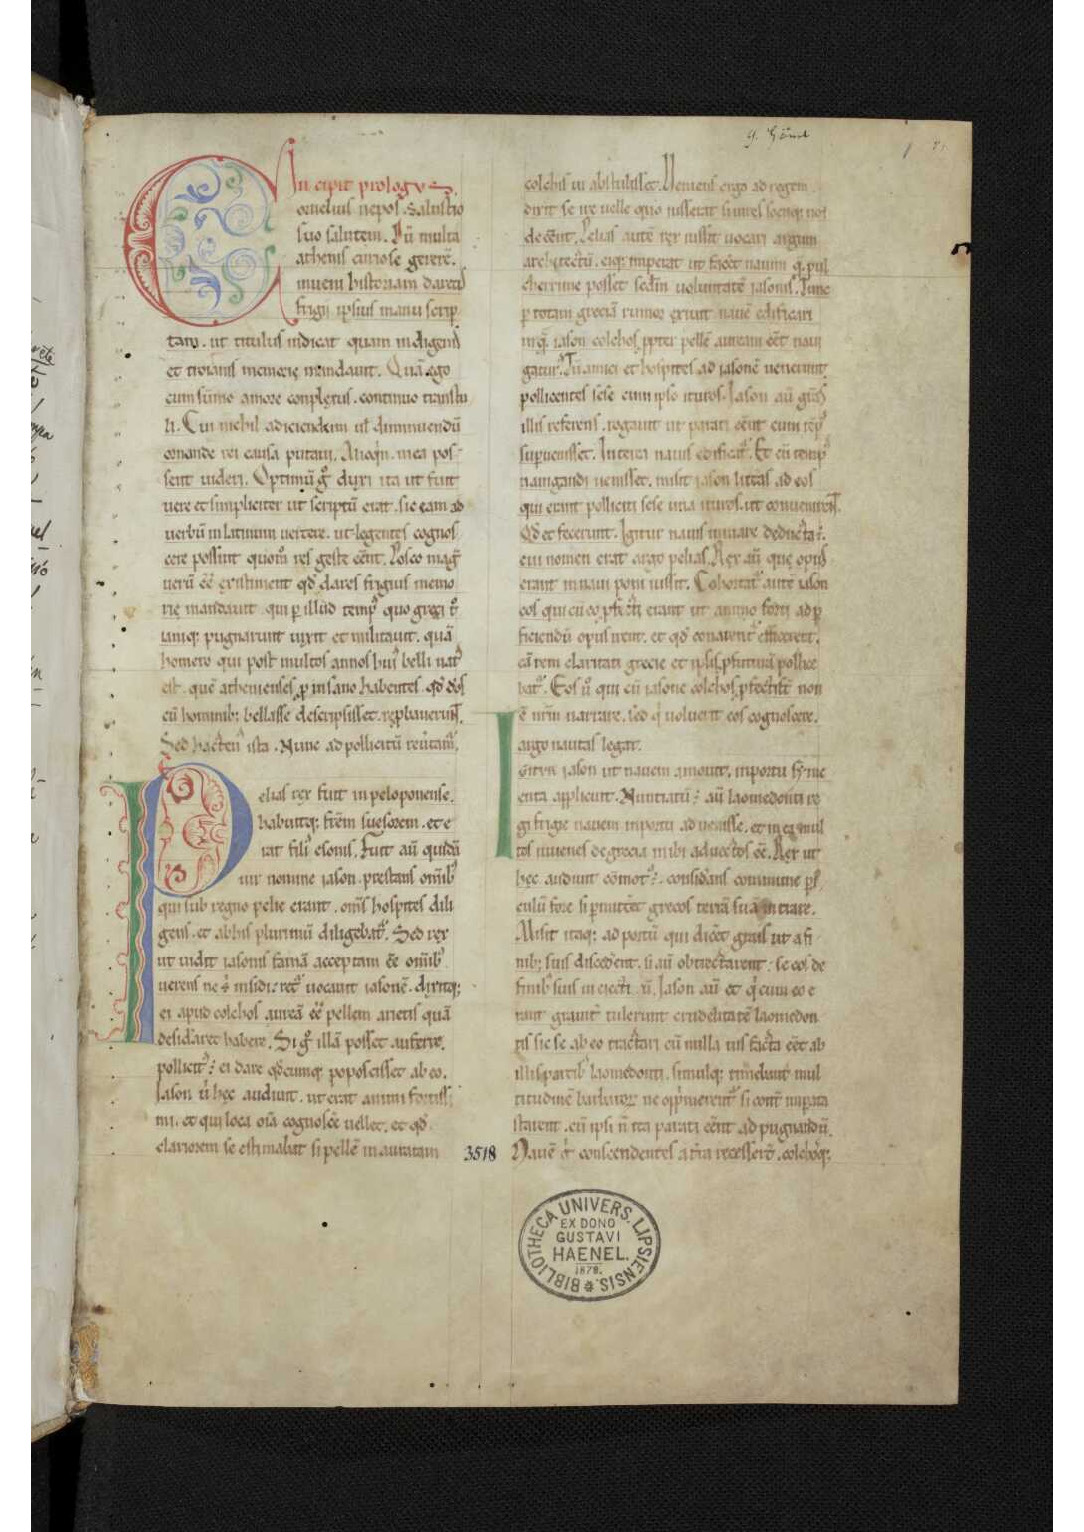 In cipit prologus.
Cornelius nepos. Salustio
suo salutem. Cū multa
athenis curiose gererē.
inueni historiam daretis
frigii ipsius manu scrip
tam. ut titulus indicat quam indigenis
et troianis memorię mandauit. Quā ego
cum sūmo amore conplexus. continuo transtu
li. Cui nichil adiciendum ut diminuendū
causā putaui. Alioqn. mea pos
sent uideri. Optimū gͦ duxi ita ut fuit
uere et simpliciter ut scriptū erat. sic eam ad
uerbū in latinum uertere. ut legentes cognos
cere possint quom̄ res geste eēnt.
uerū eē existiment qđ dares frigius memo
rię mandauit. qui per illud tempꝰ quo greci tͦ
ianiqꝫ pugnarunt uixit et militauit. quā
homero qui post multos annos huiꝰ belli natꝰ
est. quē athenienses ꝓ insano habentes. qđ dōs
cū hominibꝫ bellasse descripsisset.
Sed hactenꝰ ista. Nunc ad pollicitū
Pelias rex fuit in peloponense.
habuitqꝫ frēm suesorem. et e
rat filiꝰ esonis. Fuit aū quidā
uir nomine iason. prestans omībꝰ
qui sub regno pelie erant. om̄s hospites dili
gens. et abhis plurimū diligebatꝰ. Sed rex
ut uidit iasonis famā acceptam eē omībꝰ
uerens ne uocauit iasonē. dixitqꝫ
ei apud colchos aureā eē pellem arietis quā
desid'aret habere. Si gͦ illā posset auferre.
pollicitꝰ ei dare qđcumqꝫ poposcisset ab eo.
Iason ū hec audiuit. ut erat animi fortissi
mi. et qui loca oīa cognoscē uellet. et qđ
clariorem se estimabat si pellē in auratam
colchis ui abstulisset. Ueniens ergo ad regem
dixit se ire uelle quo iusserat si uires sociiqꝫ nō
deēēnt. Pelias autē rex iussit uocari argum
architectū. eiqꝫ imperat ut facēt nauim q̄ pul
cherrime posset sedm uoluntatē iasonis. Tunc
ꝑ totam greciā rumor exiuit nauē edificari
in q̄ iason colchos ꝓpter pellē auream eēt naui
gaturꝰ. Tū amici et hospites ad iasonē uenerunt
pollicentes sese cum ipso ituros. Iason aū
illis referens. rogauit ut parati eēnt cum
superuenisset. Interea nauis edificatꝰ. Et cū tempꝰ
nauigandi uenisset. misit iason litt̄as ad eos
qui erant polliciti sese una ituros. ut conuenirent.
Qđ et fecerunt. Igitur nauis in mare deducta ē.
cui nomen erat argo pelias. Rex aū que opꝰ
erant in naui poni iussit. Cohortatꝰ autē iason
eos qui cū eo ꝓfecti erant ut animo forti ad ꝑ
ficiendū opus irent. et qđ conarentꝰ efficerent.
eā rem claritati grecie et ipsis
batꝰ. Eos ū qui cū iasone colchos ꝓfecti st̄ non
ē nr̄m narrare. sed qͥ uoluerit eos cognoscere.
argo nautas legat.
Igitur iason ut nauem amouit. in portū
enta applicuit. Nuntiatū ē aū laomedonti re
gi frigie nauem in portū ad uenisse. et in ea mul
tos iuuenes de grecia inibi aduectos eē. Rex ut
hec audiuit cōmotꝰ ē. considans commune
culū fore si ꝑmittēt grecos terrā suā intrare.
Misit itaqꝫ ad portū qui dicēt grais ut a fi
nibꝫ suis discedēent. si aū obtrectarent. se eos de
finibꝰ suis Iason aū et qͥ cum eo e
rant grauitꝰ tulerunt crudelitatē laomedon
tis sic se ab eo tractari cū nulla ius facta eēt ab
illis partibꝰ laomedonti. simulqꝫ timebant mul
titudinē barbaroꝝ ne oppͥmerentꝰ si contͣ imperata
starent. cū ipsi n̄ ita parati eēnt ad pugnandū.
Nauē gͥ conscendentes a tr̄ra recesserunt.
3518
BIBLIOTHECA UNIVERS. LIPSIENSIS.
EX DONO
GUSTAVI
HAENEL.
1878.